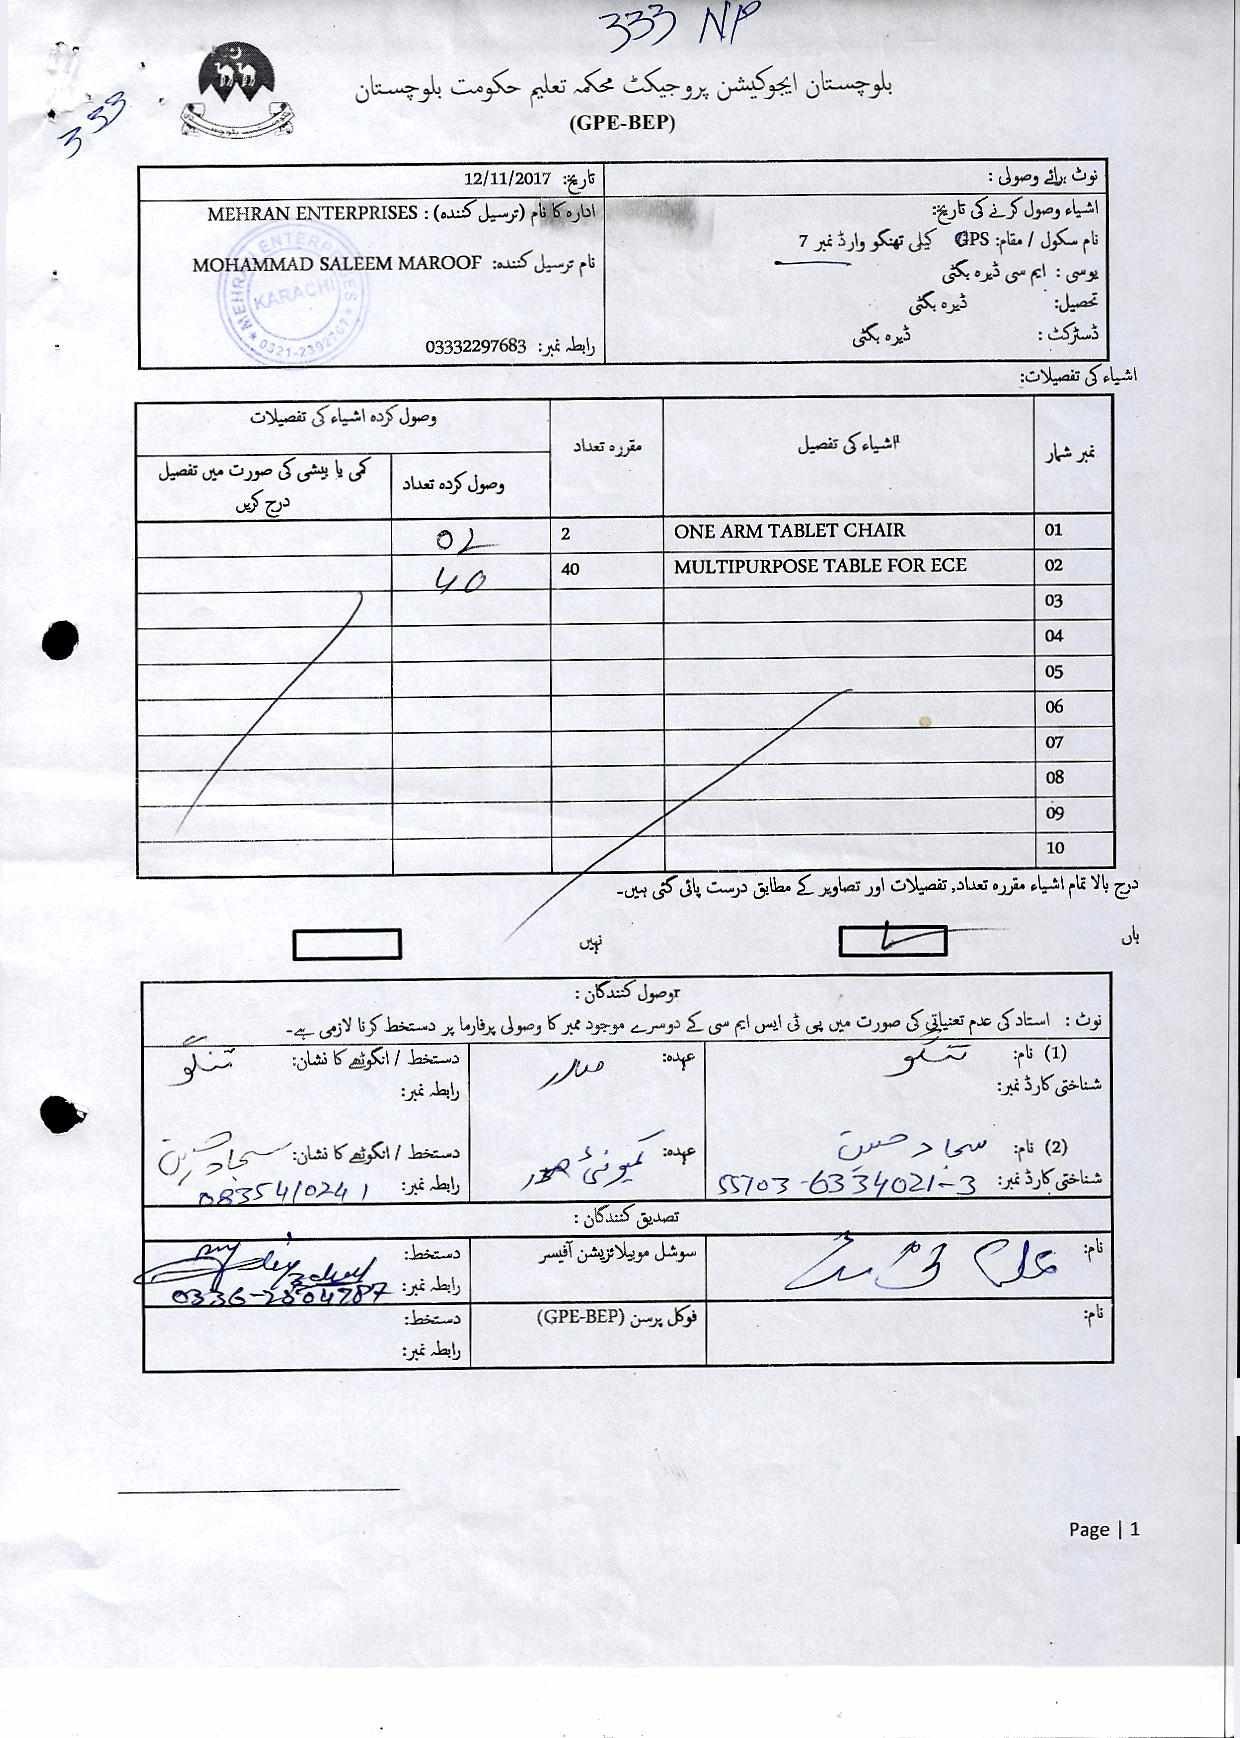 333 NP
333
بلوچستان ایجوکیشن پروجیکٹ محکمہ تعلیم حکومت بلوچستان
(GPE-BEP)
نوٹ برائے وصولی :
اشیاء وصول کرنے کی تاریخ:
نام سکول / مقام: GPS کیلی تھنگو وارڈ نمبر 7
یوسی : ایم سی ڈیرہ بگٹی
تحصیل: ڈیرہ بگٹی
ڈسٹرکٹ : ڈیرہ بگٹی
تاریخ: 12/11/2017
ادارہ کا نام (ترسیل کنندہ) : MEHRAN ENTERPRISES
نام ترسیل کنندہ: MOHAMMAD SALEEM MAROOF
رابطہ نمبر: 03332297683
MEHRAN ENTERPRISES
KARACHI
اشیاء کی تفصیلات:
نمبر شمار اشیاء کی تفصیل مقررہ تعداد وصول کردہ اشیاء کی تفصیلات
وصول کردہ تعداد کمی یا بیشی کی صورت میں تفصیل درج کریں
01 ONE ARM TABLET CHAIR 2 02
02 MULTIPURPOSE TABLE FOR ECE 40 40
03
04
05
06
07
08
09
10
درج بالا تمام اشیاء مقررہ تعداد, تفصیلات اور تصاویر کے مطابق درست پائی گئی ہیں۔
ہاں نہیں
وصول کنندگان :
نوٹ : استاد کی عدم تعنیاتی کی صورت میں پی ٹی ایس ایم سی کے دوسرے موجود ممبر کا وصولی پرفارما پر دستخط کرنا لازمی ہے۔
(1) نام: تنگو عہدہ: صدر دستخط / انگوٹھے کا نشان: تنگو
شناختی کارڈ نمبر: رابطہ نمبر:
(2) نام: سجاد حسین عہدہ: کمیونٹی دستخط / انگوٹھے کا نشان: سجاد حسین
شناختی کارڈ نمبر: 55703-6334021-3 رابطہ نمبر: 0835410241
تصدیق کنندگان :
نام: سوشل موبیلائزیشن آفیسر دستخط:
رابطہ نمبر: 0336-2804787
نام: فوکل پرسن (GPE-BEP) دستخط:
رابطہ نمبر:
Page | 1